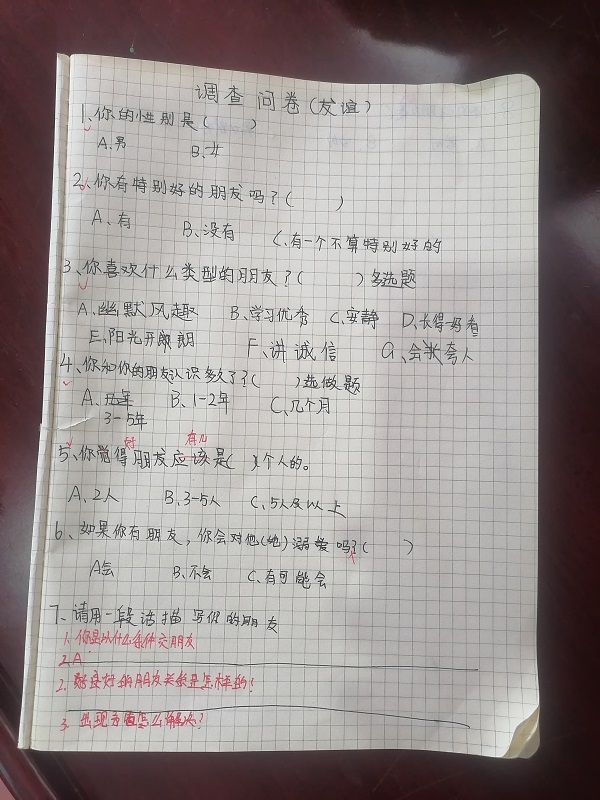 调查问卷(友谊)
1、你的性别是( )
A、男 B、女
2、你有特别好的朋友吗?( )
A、有 B、没有 C、有一个不算特别好的
3、你喜欢什么类型的朋友?( )多选题
A、幽默风趣 B、学习优秀 C、安静 D、长得好看
E、阳光开朗 F、讲诚信 G、会夸人
4、你和你的朋友认识多久了?( )选做题
A、几年 B、1-2年 C、几个月
3-5年
好 有几
5、你觉得朋友应该是( )个人的。
A、2人 B、3-5人 C、5人及以上
6、如果你有朋友,你会对他(她)溺爱吗?( )
A会 B、不会 C、有可能会
7、请用一段话描写你的朋友
1、你是以什么条件交朋友
2、A
2、良好的朋友关系是怎样的?
3、出现矛盾怎么解决?